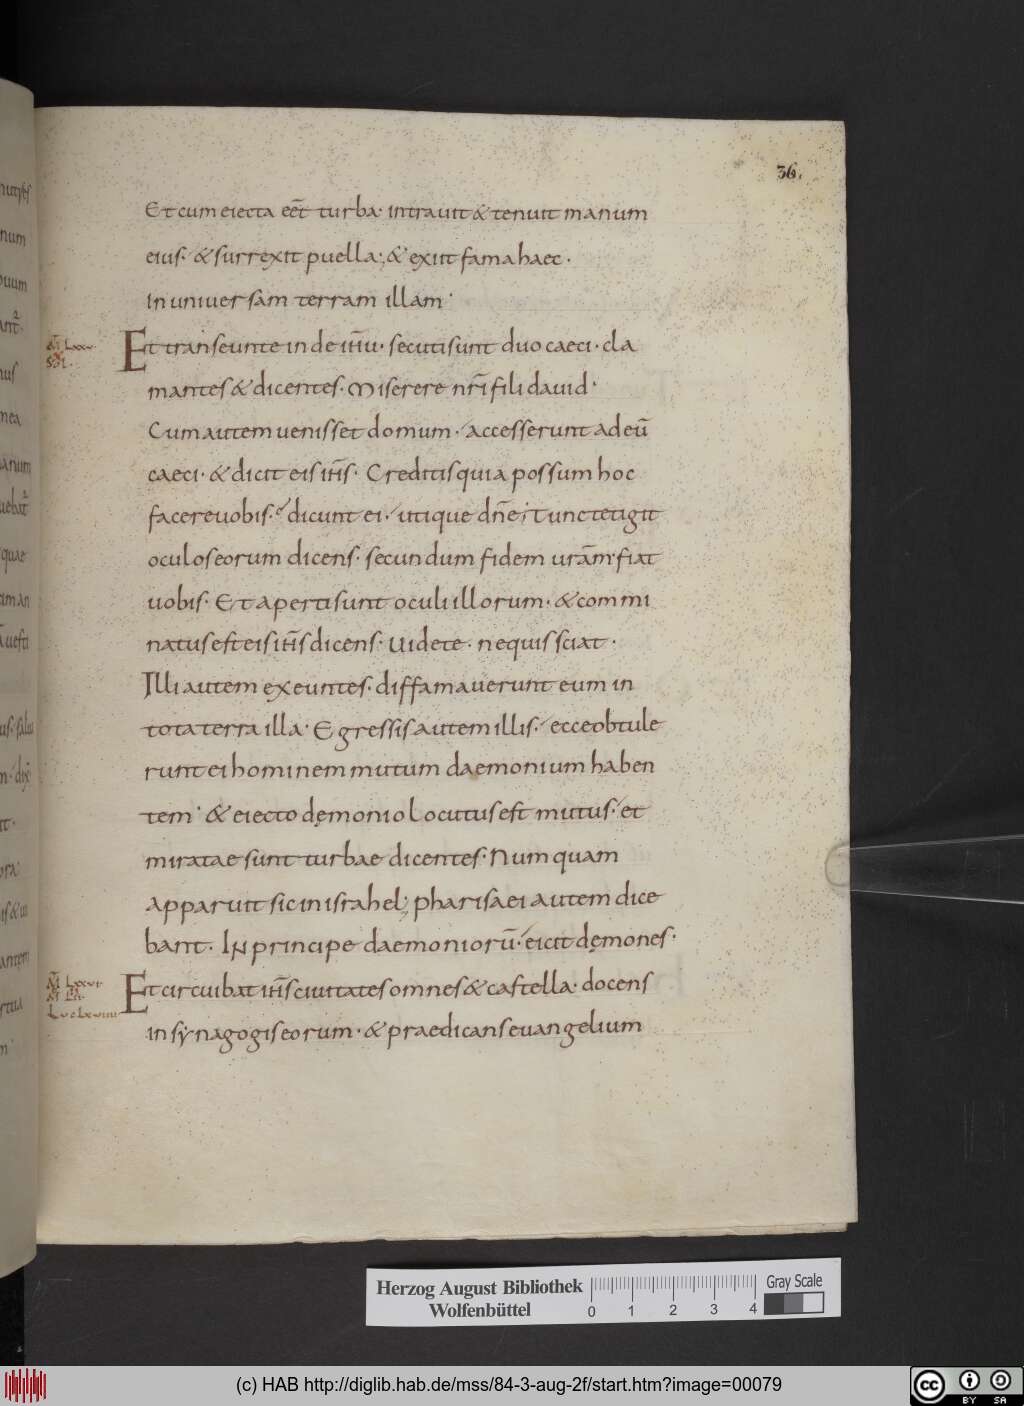 36.
Et cum eiecta eēt turba· intravit & tenuit manum
eius· & surrexit puella·, & exiit fama haec·
in universam terram illam·
Et transeunte inde ihū· secuti sunt duo caeci· cla
mantes & dicentes· Miserere nr̄i fili david·
Cum autem venisset domum· accesserunt ad eū
caeci· & dicit eis ih̄s· Creditis quia possum hoc
facere vobis· dicunt ei· utique dn̄e· Tunc tetigit
oculos eorum dicens· secundum fidem vr̄am· fiat
vobis· Et aperti sunt oculi illorum· & commi
natus est eis ih̄s dicens· Videte· ne quis sciat·
Illi autem exeuntes· diffamaverunt eum in
tota terra illa· Egressis autem illis· ecce obtule
runt ei hominem mutum daemonium haben
tem· & eiecto dęmonio locutus est mutus· et
miratae sunt turbae dicentes· Numquam
apparuit sic in israhel; pharisaei autem dice
bant· In principe daemoniorū· eicit dęmones·
Et circuibat ih̄s civitates omnes & castella· docens
in synagogis eorum· & praedicans evangelium
Herzog August Bibliothek
Wolfenbüttel
0 1 2 3 4
Gray Scale
(c) HAB http://diglib.hab.de/mss/84-3-aug-2f/start.htm?image=00079
cc BY SA